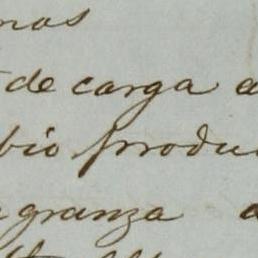 mos
de carga a
bio produ
granza a